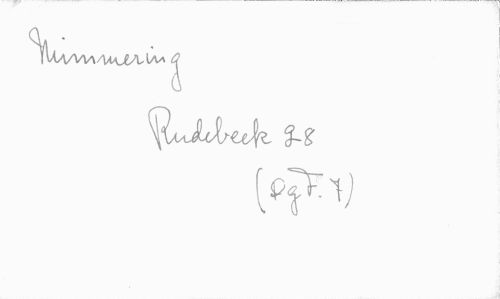 Mimmering
Rudebeck 98
(DgF. 7)